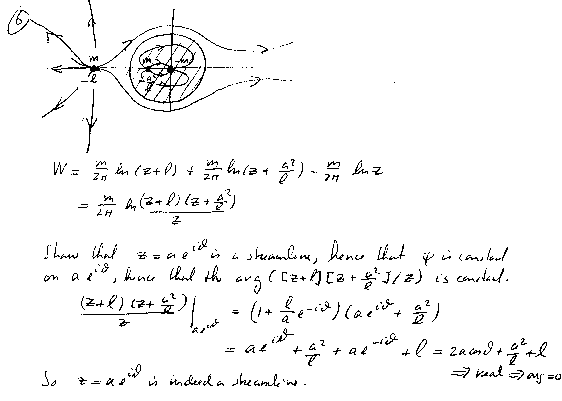 6
m m -m
-l
W = m/2π ln(z+l) + m/2π ln(z + a²/l) - m/2π ln z
= m/2π ln (z+l)(z+a²/l)/z
Show that z = a e^{iϑ} is a streamline, hence that ψ is constant
on a e^{iϑ}, hence that the arg([z+l][z+a²/l]/z) is constant.
(z+l)(z+a²/l)/z |_{ae^{iϑ}} = (1 + l/a e^{-iϑ})(a e^{iϑ} + a²/l)
= a e^{iϑ} + a²/l + a e^{-iϑ} + l = 2a cosϑ + a²/l + l
⇒ real ⇒ arg=0
So z = a e^{iϑ} is indeed a streamline.